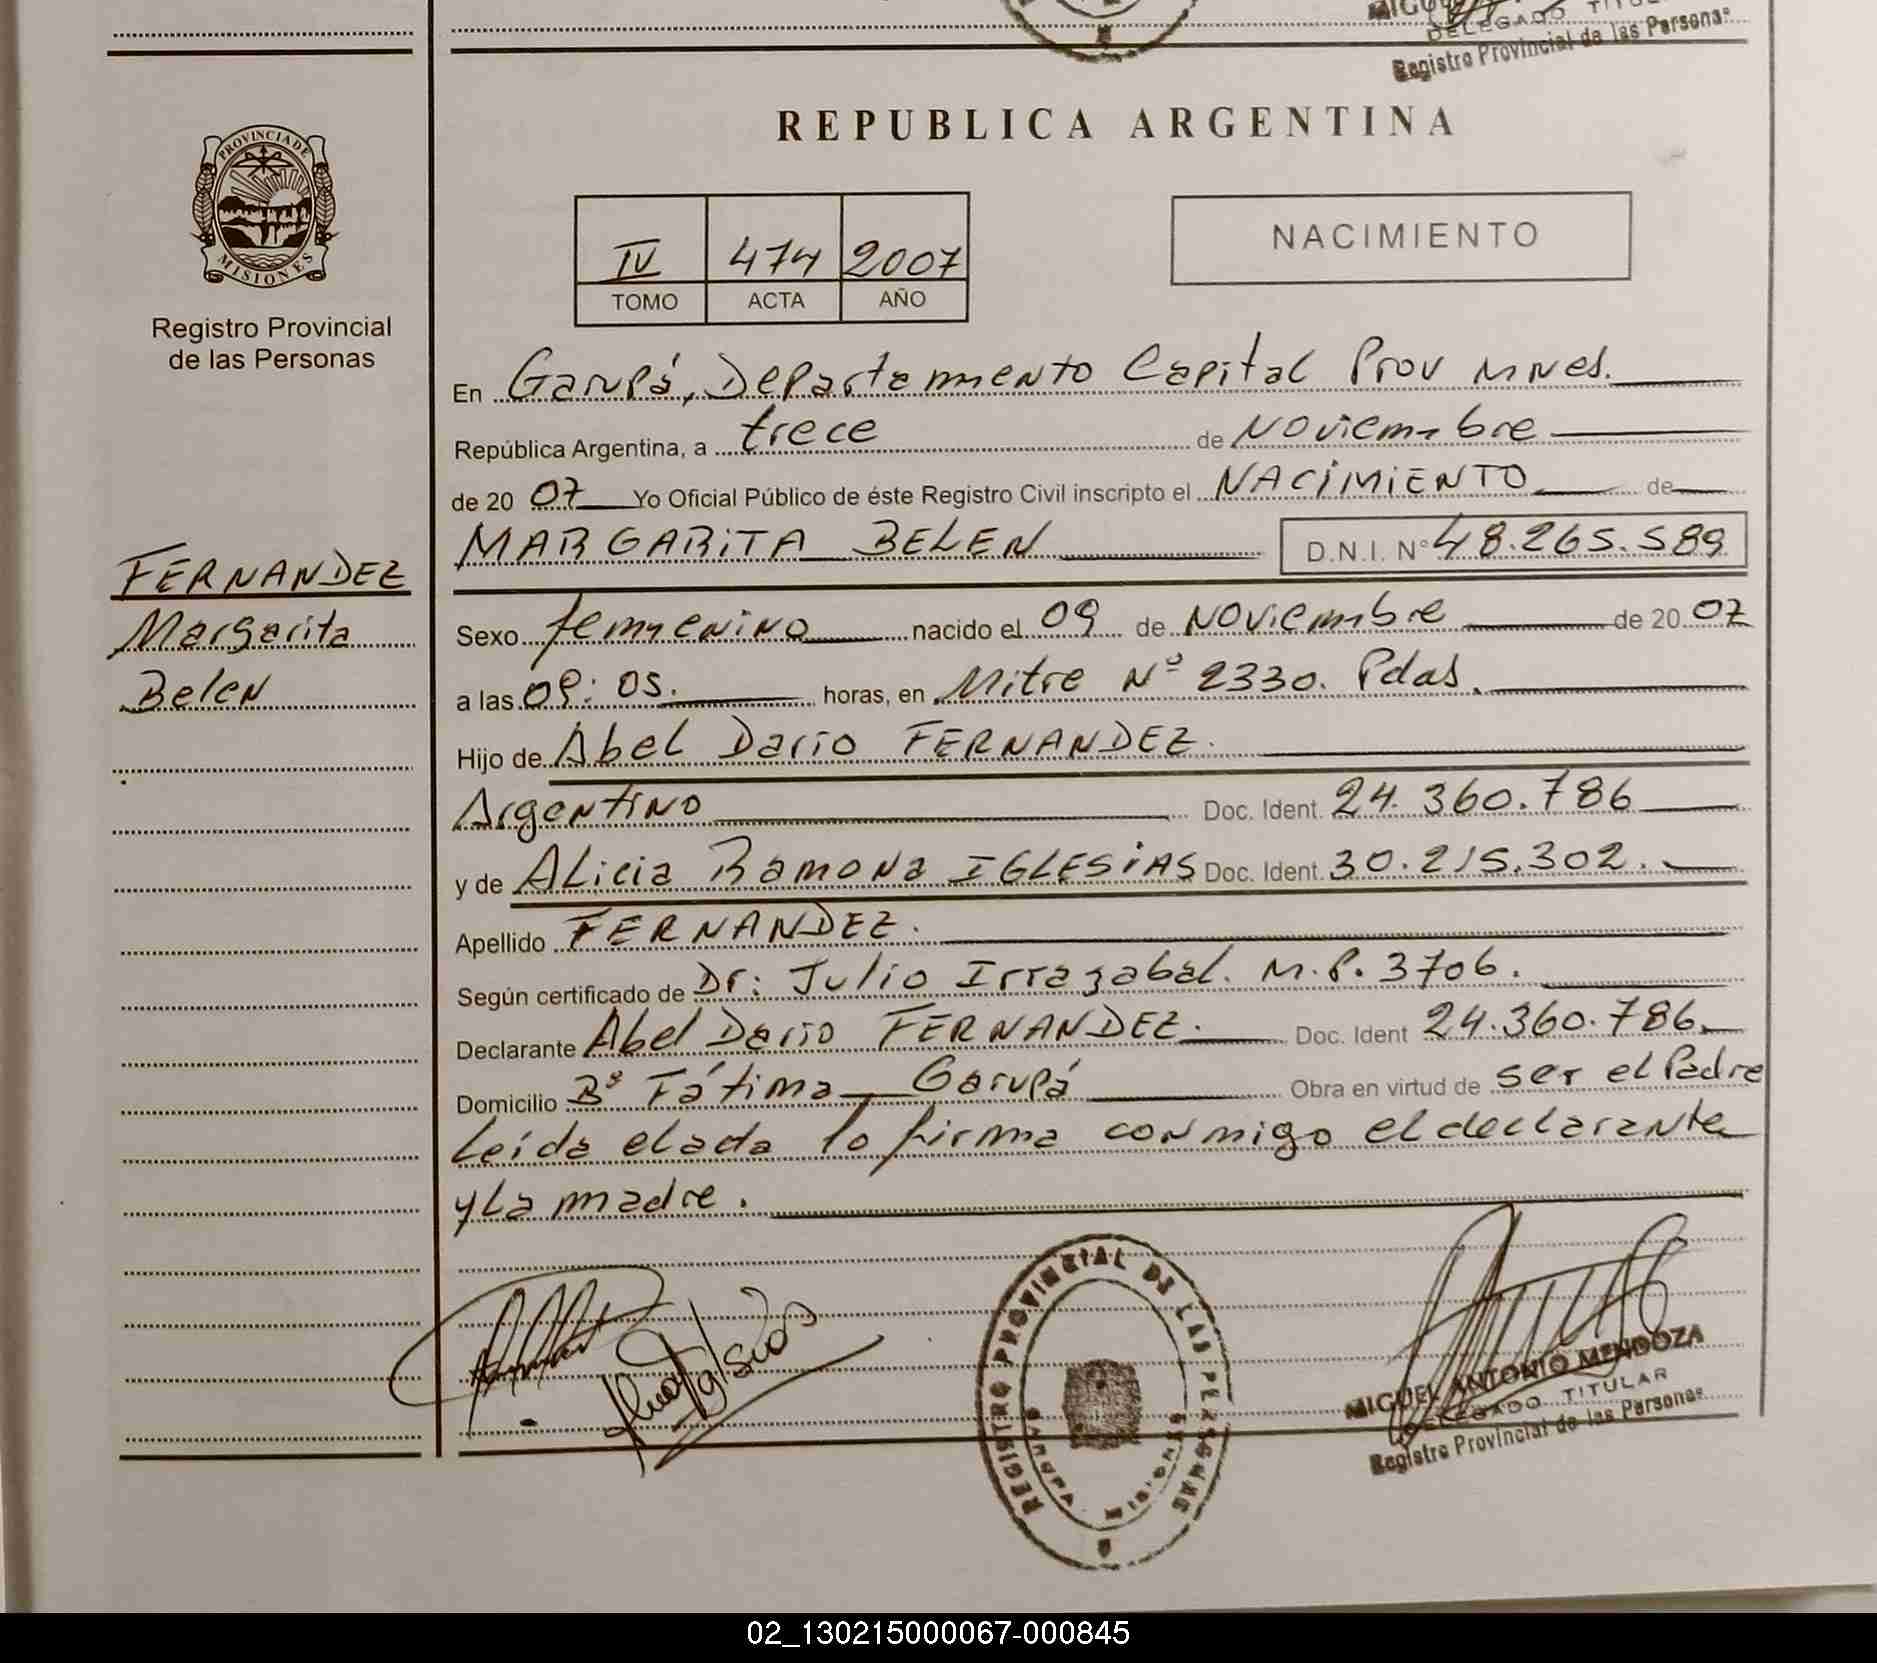 MIGU
DELEGADO TITUL
Registro Provincial de las Personas
REPUBLICA ARGENTINA
PROVINCIA DE
MISIONES
Registro Provincial
de las Personas
IV 474 2007
TOMO ACTA AÑO
NACIMIENTO
En Garupá, Departamento Capital Prov Mnes.
República Argentina, a trece de Noviembre
de 20 07 Yo Oficial Público de éste Registro Civil inscripto el NACIMIENTO de
MARGARITA BELEN D.N.I. Nº 48.265.589
FERNANDEZ
Margarita
Belen
Sexo femenino nacido el 09 de Noviembre de 20 07
a las 09:05. horas, en Mitre Nº 2330. Pdas.
Hijo de Abel Dario FERNANDEZ.
Argentino Doc. Ident. 24.360.786
y de Alicia Ramona IGLESIAS Doc. Ident. 30.215.302.
Apellido FERNANDEZ.
Según certificado de Dr: Julio Irrazabal. M.P. 3706.
Declarante Abel Dario FERNANDEZ. Doc. Ident 24.360.786.
Domicilio Bº Fátima Garupá Obra en virtud de ser el Padre
Leída el acta lo firma conmigo el declarante
y La madre.
REGISTRO PROVINCIAL DE LAS PERSONAS
GARUPA MISIONES
MIGUEL ANTONIO MENDOZA
DELEGADO TITULAR
Registro Provincial de las Personas
02_130215000067-000845